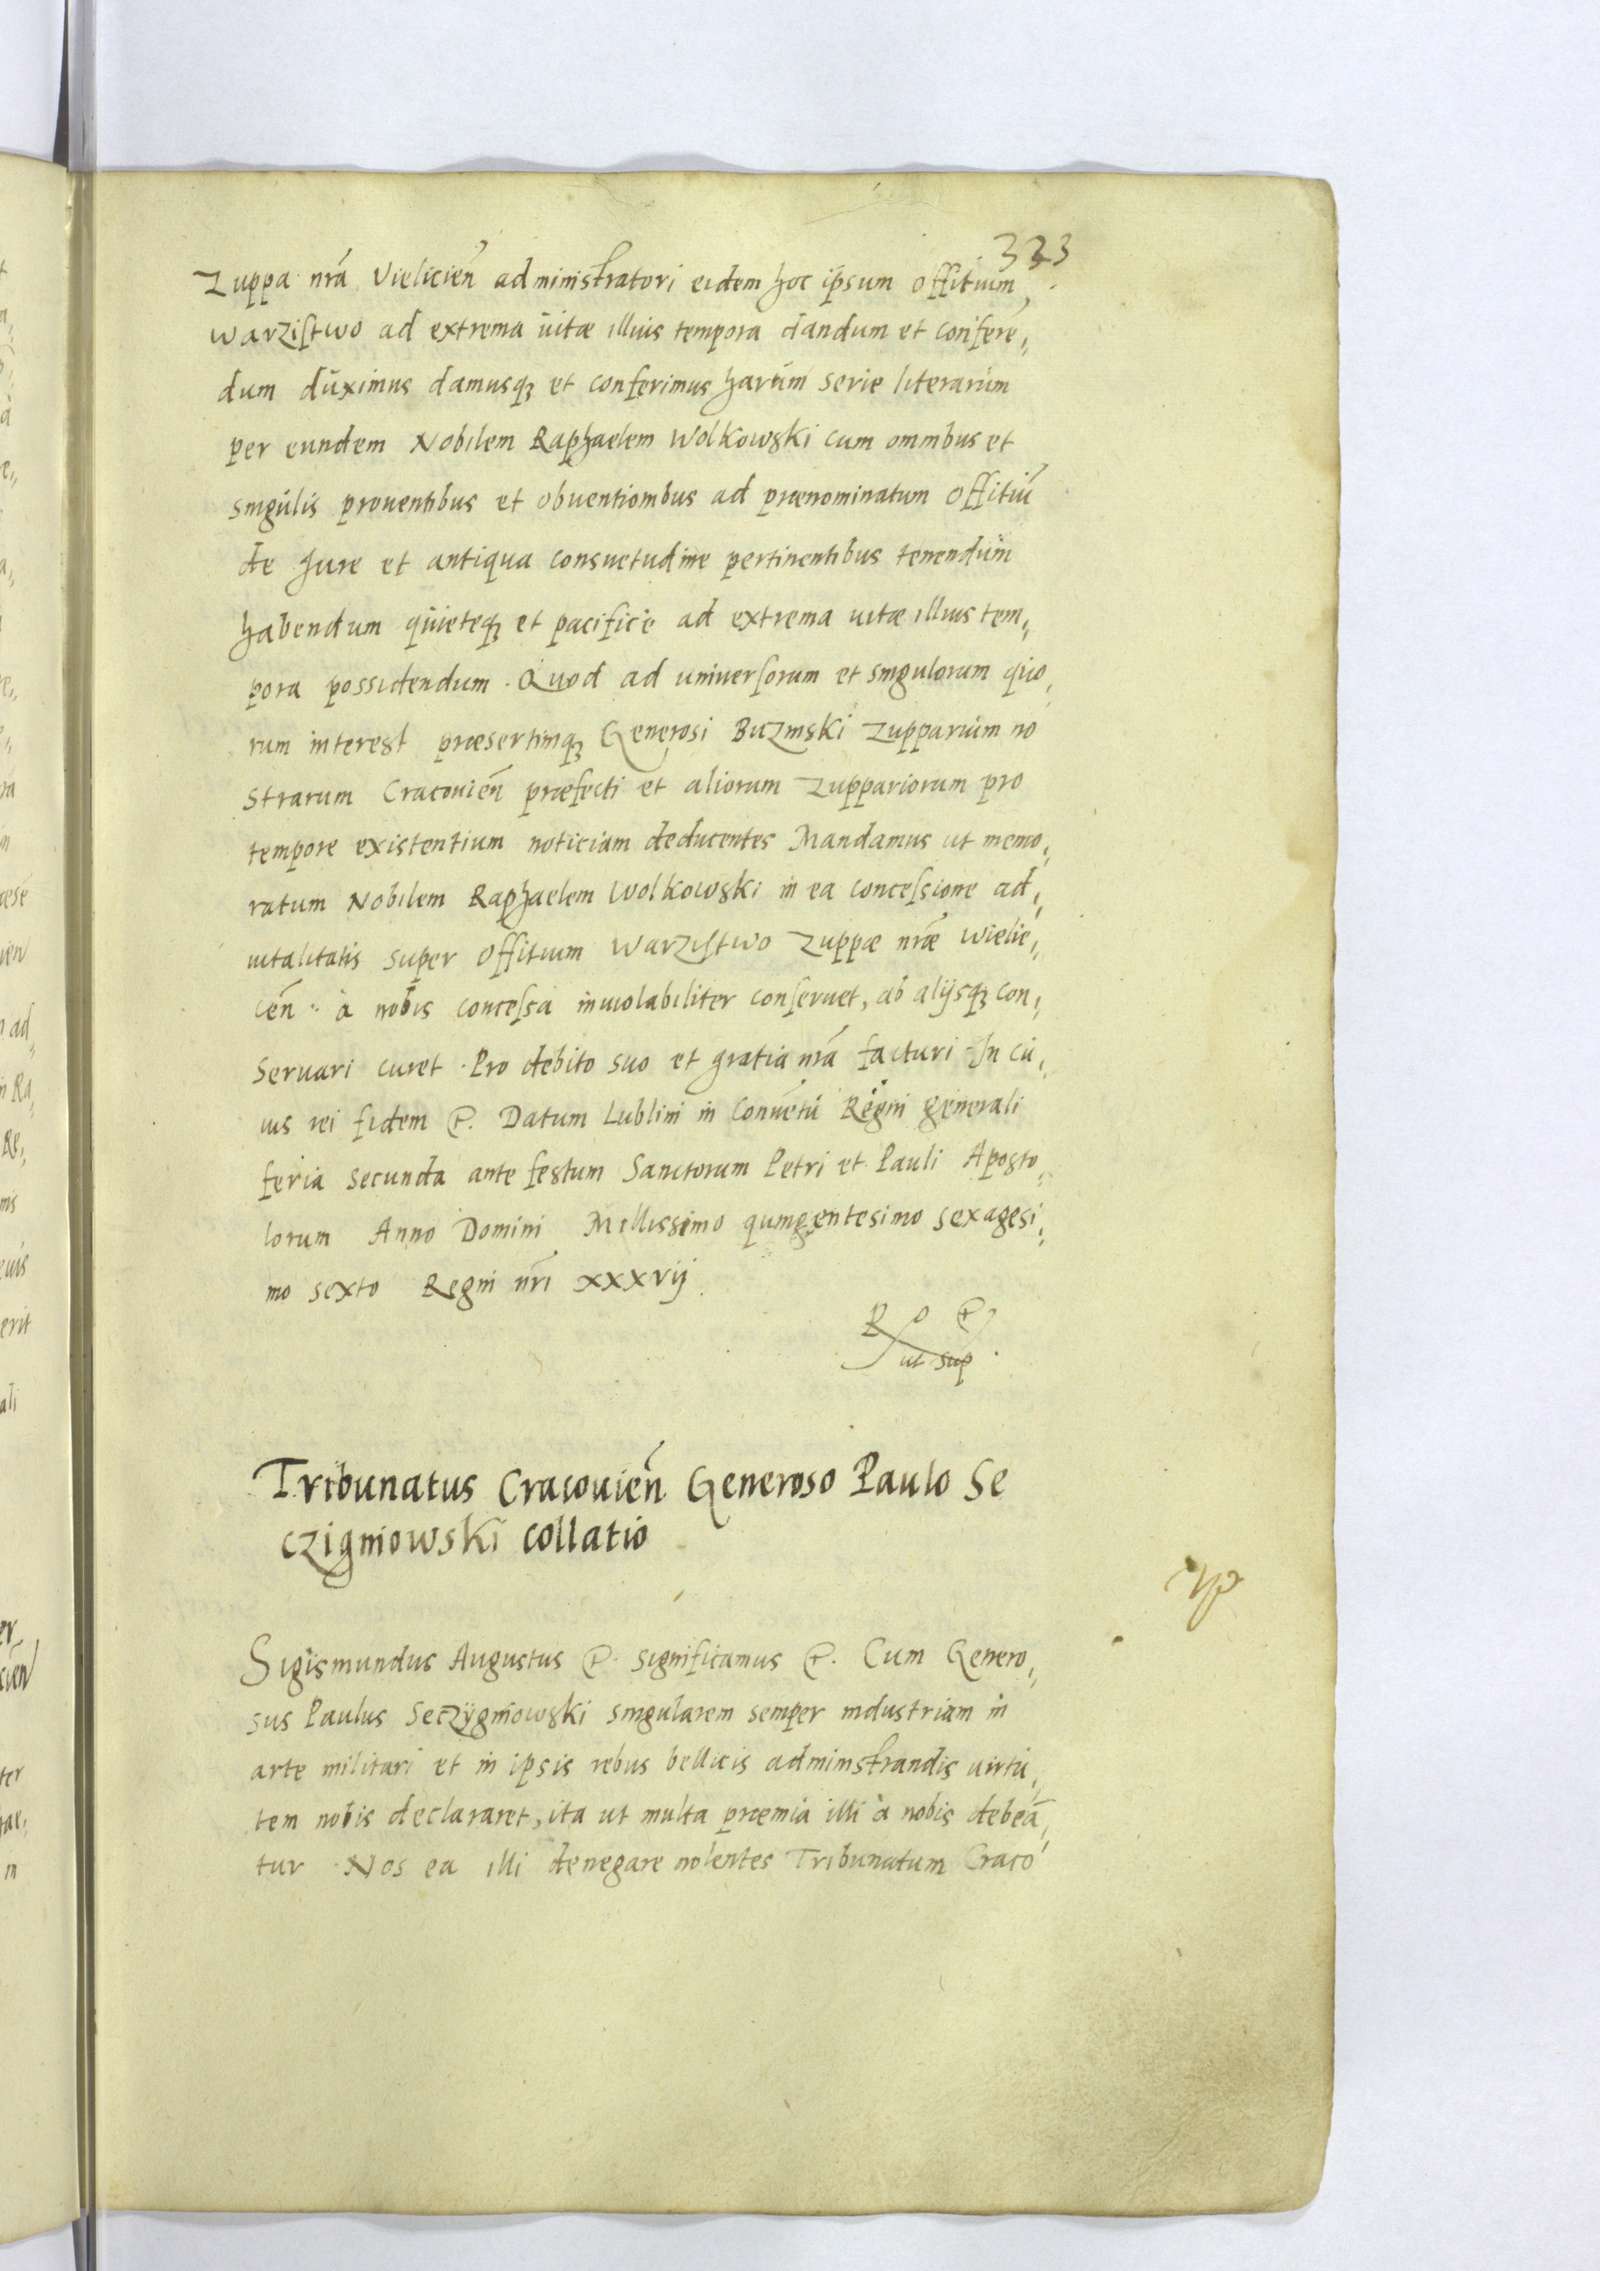 333
Zuppa nrā Vieliciēn administratori eidem hoc ipsum offitium
warzistwo ad extrema uitæ illius tempora dandum et conferē,,
dum duximus damusq; et conferimus harum serie literarum
per eundem Nobilem Raphaelem Wolkowski cum omnibus et
singulis prouentibus et obuentionibus ad prænominatum offitiū
de Jure et antiqua consuetudine pertinentibus tenendum
habendum quieteq; et pacifice ad extrema uitæ illius tem,,
pora possidendum. Quod ad uniuersorum et singulorum quo,
rum interest præsertimq; Generosi Buzinski Zupparum no
strarum Cracouiēn præfecti et aliorum Zuppariorum pro
tempore existentium noticiam deducentes Mandamus ut memo,,
ratum Nobilem Raphaelem Wolkowski in ea concessione ad,,
uitalitatis super offitium Warzistwo Zuppæ nræ wielie,,
cēn à nobis concessa inuiolabiliter conseruet, ab alijsq; con,,
seruari curet. Pro debito suo et gratia nrā facturi In cu,,
ius rei fidem &. Datum Lublini in Conuētu Regni generali
feria secunda ante festum Sanctorum Petri et Pauli Aposto,,
lorum Anno Domini Millissimo quingentesimo sexagesi,,
mo sexto Regni nri xxxvij
R o &
ut sup
Tribunatus Cracouiēn Generoso Paulo Se
czigniowski collatio
Sigismundus Augustus &. significamus &. Cum Genero,,
sus Paulus Seczÿgniowski singularem semper industriam in
arte militari et in ipsis rebus bellicis administrandis uirtu,,
tem nobis declararet, ita ut multa præmia illi à nobis debeā,,
tur. Nos ea illi denegare nolentes Tribunatum Craco